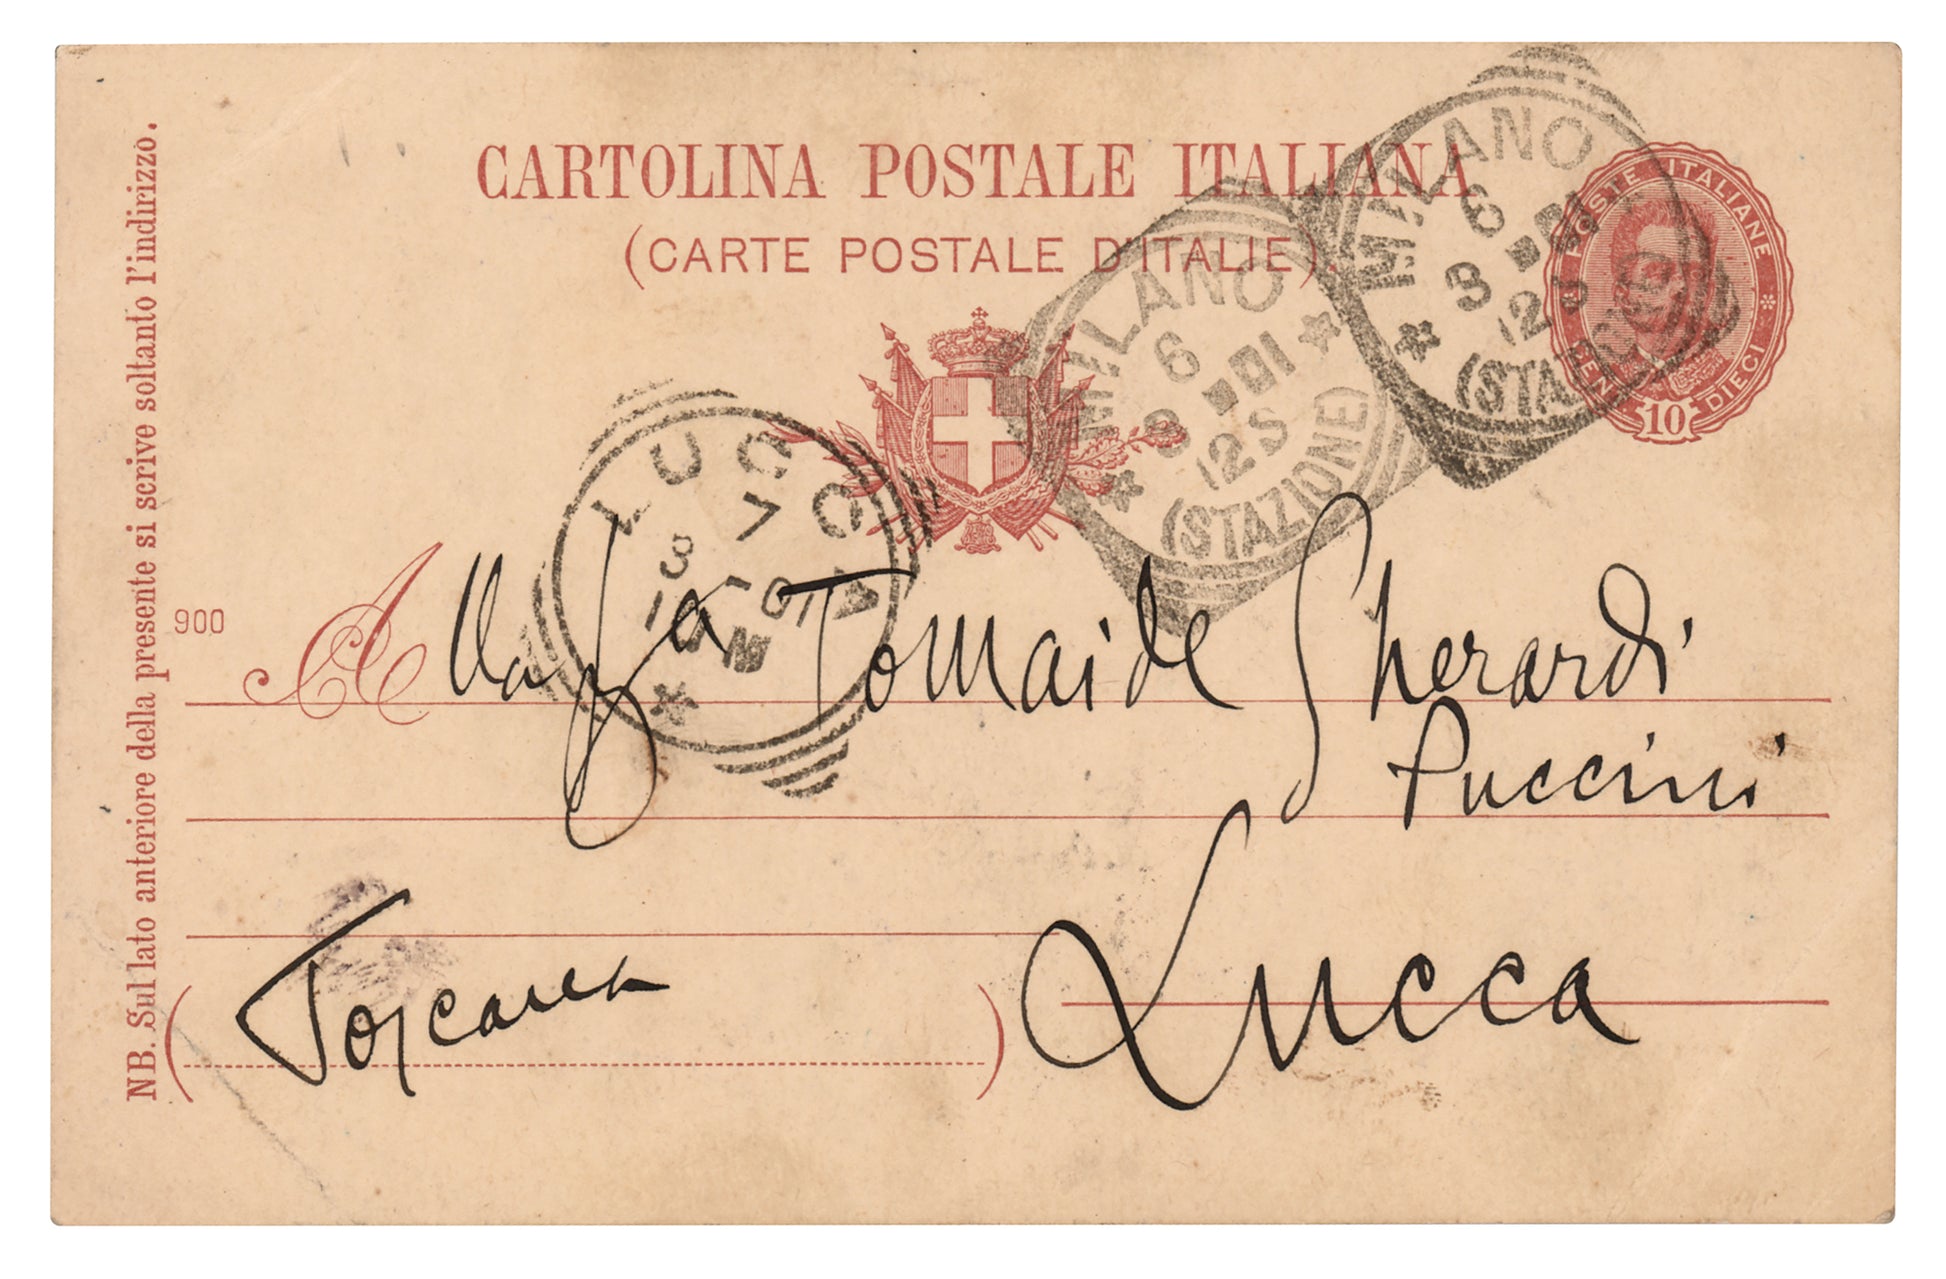 CARTOLINA POSTALE ITALIANA
(CARTE POSTALE D'ITALIE).
POSTE ITALIANE
CENT. DIECI
10
MILANO
6
3 01
12 S
(STAZIONE)
MILANO
6
3 01
12 S
(STAZIONE)
LUCCA
7
3 - 01
NB. Sul lato anteriore della presente si scrive soltanto l'indirizzo.
900
Alla Sra Tomaide Gherardi
Puccini
Lucca
(Toscana)